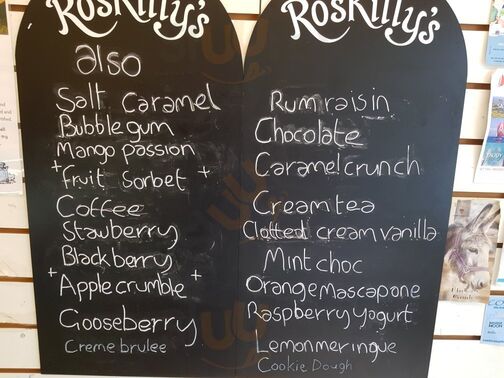 Roskilly's
also
Salt Caramel
Bubblegum
Mango passion
+ Fruit Sorbet +
Coffee
Stawberry
Blackberry
+ Apple crumble +
Gooseberry
Creme brulee
Roskilly's
Rum raisin
Chocolate
Caramel crunch
Cream tea
Clotted cream vanilla
Mint choc
Orange Mascapone
Raspberry yogurt
Lemon meringue
Cookie Dough